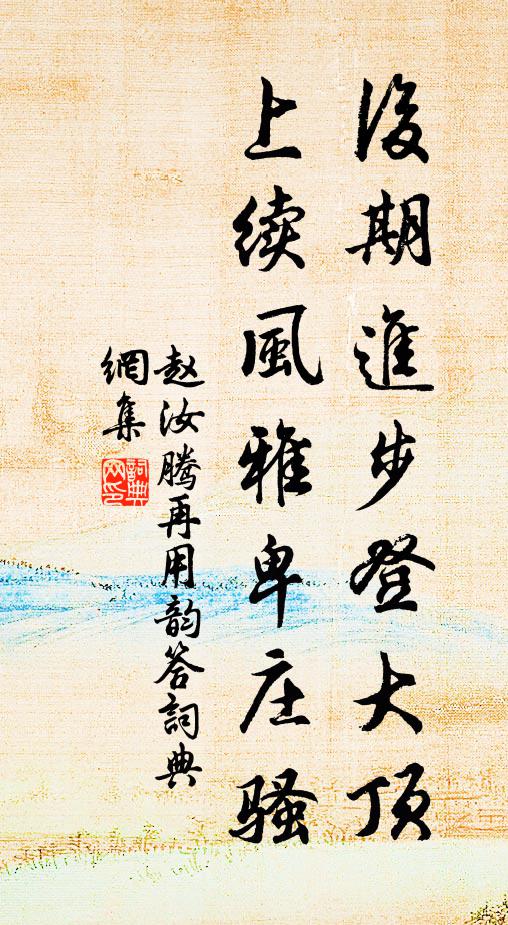 後期進步登大顶
上续風雅卑庄骚
赵汝腾再用韵答詞典
網集
詞典
网印